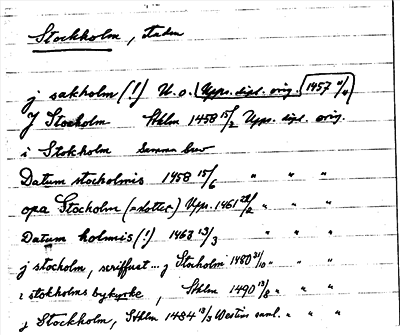 Stockholm, staden
j sakholm (!) U. o. (Upps. dipl. orig. 1457
J Stocholm Sthlm 1458 15/2 Upps. dipl. orig.
i Stokholm samma brev
Datum stocholmis 1458 15/6 " " "
opa Stocholm Upps. 1461 " " "
Datum holmis (!) 1463 13/3 " " "
j stocholm, scriffuet ... j Stocholm 1480 31/10 " " "
i stokholms bykyrke, Sthlm 1490 13/8 " " "
j Stockholm, Sthlm 1484 saml. " " "